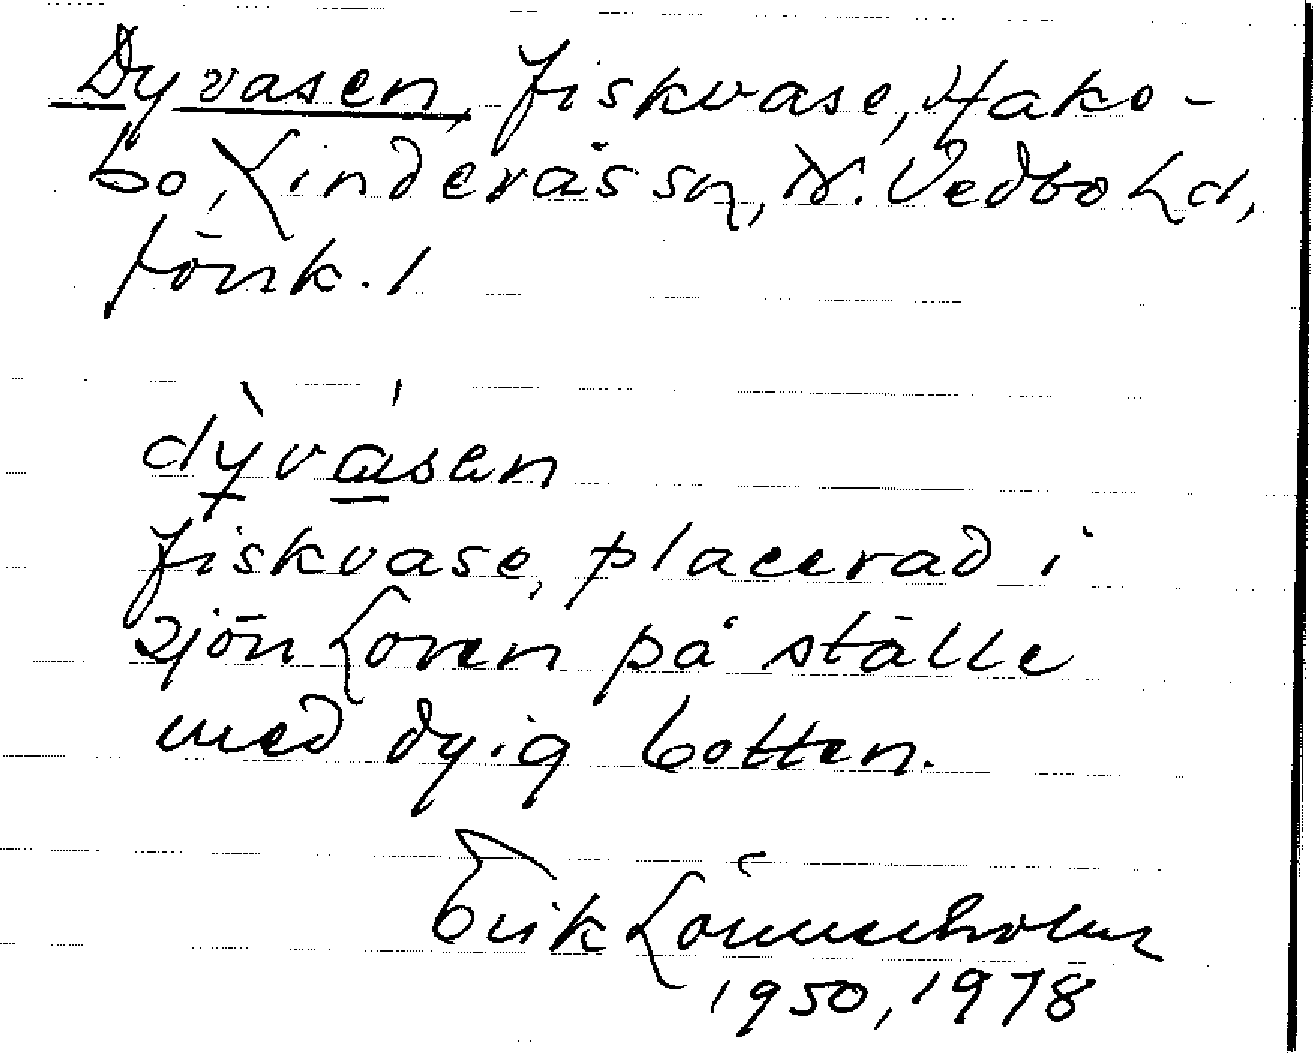 Dyvasen, fiskvase, Hako-
bo, Linderås sn, N. Vedbo hd,
Jönk. l
dỳvásen
fiskvase, placerad i
sjön Loren på ställe
med dyig botten.
Erik Lönnerholm
1950, 1978